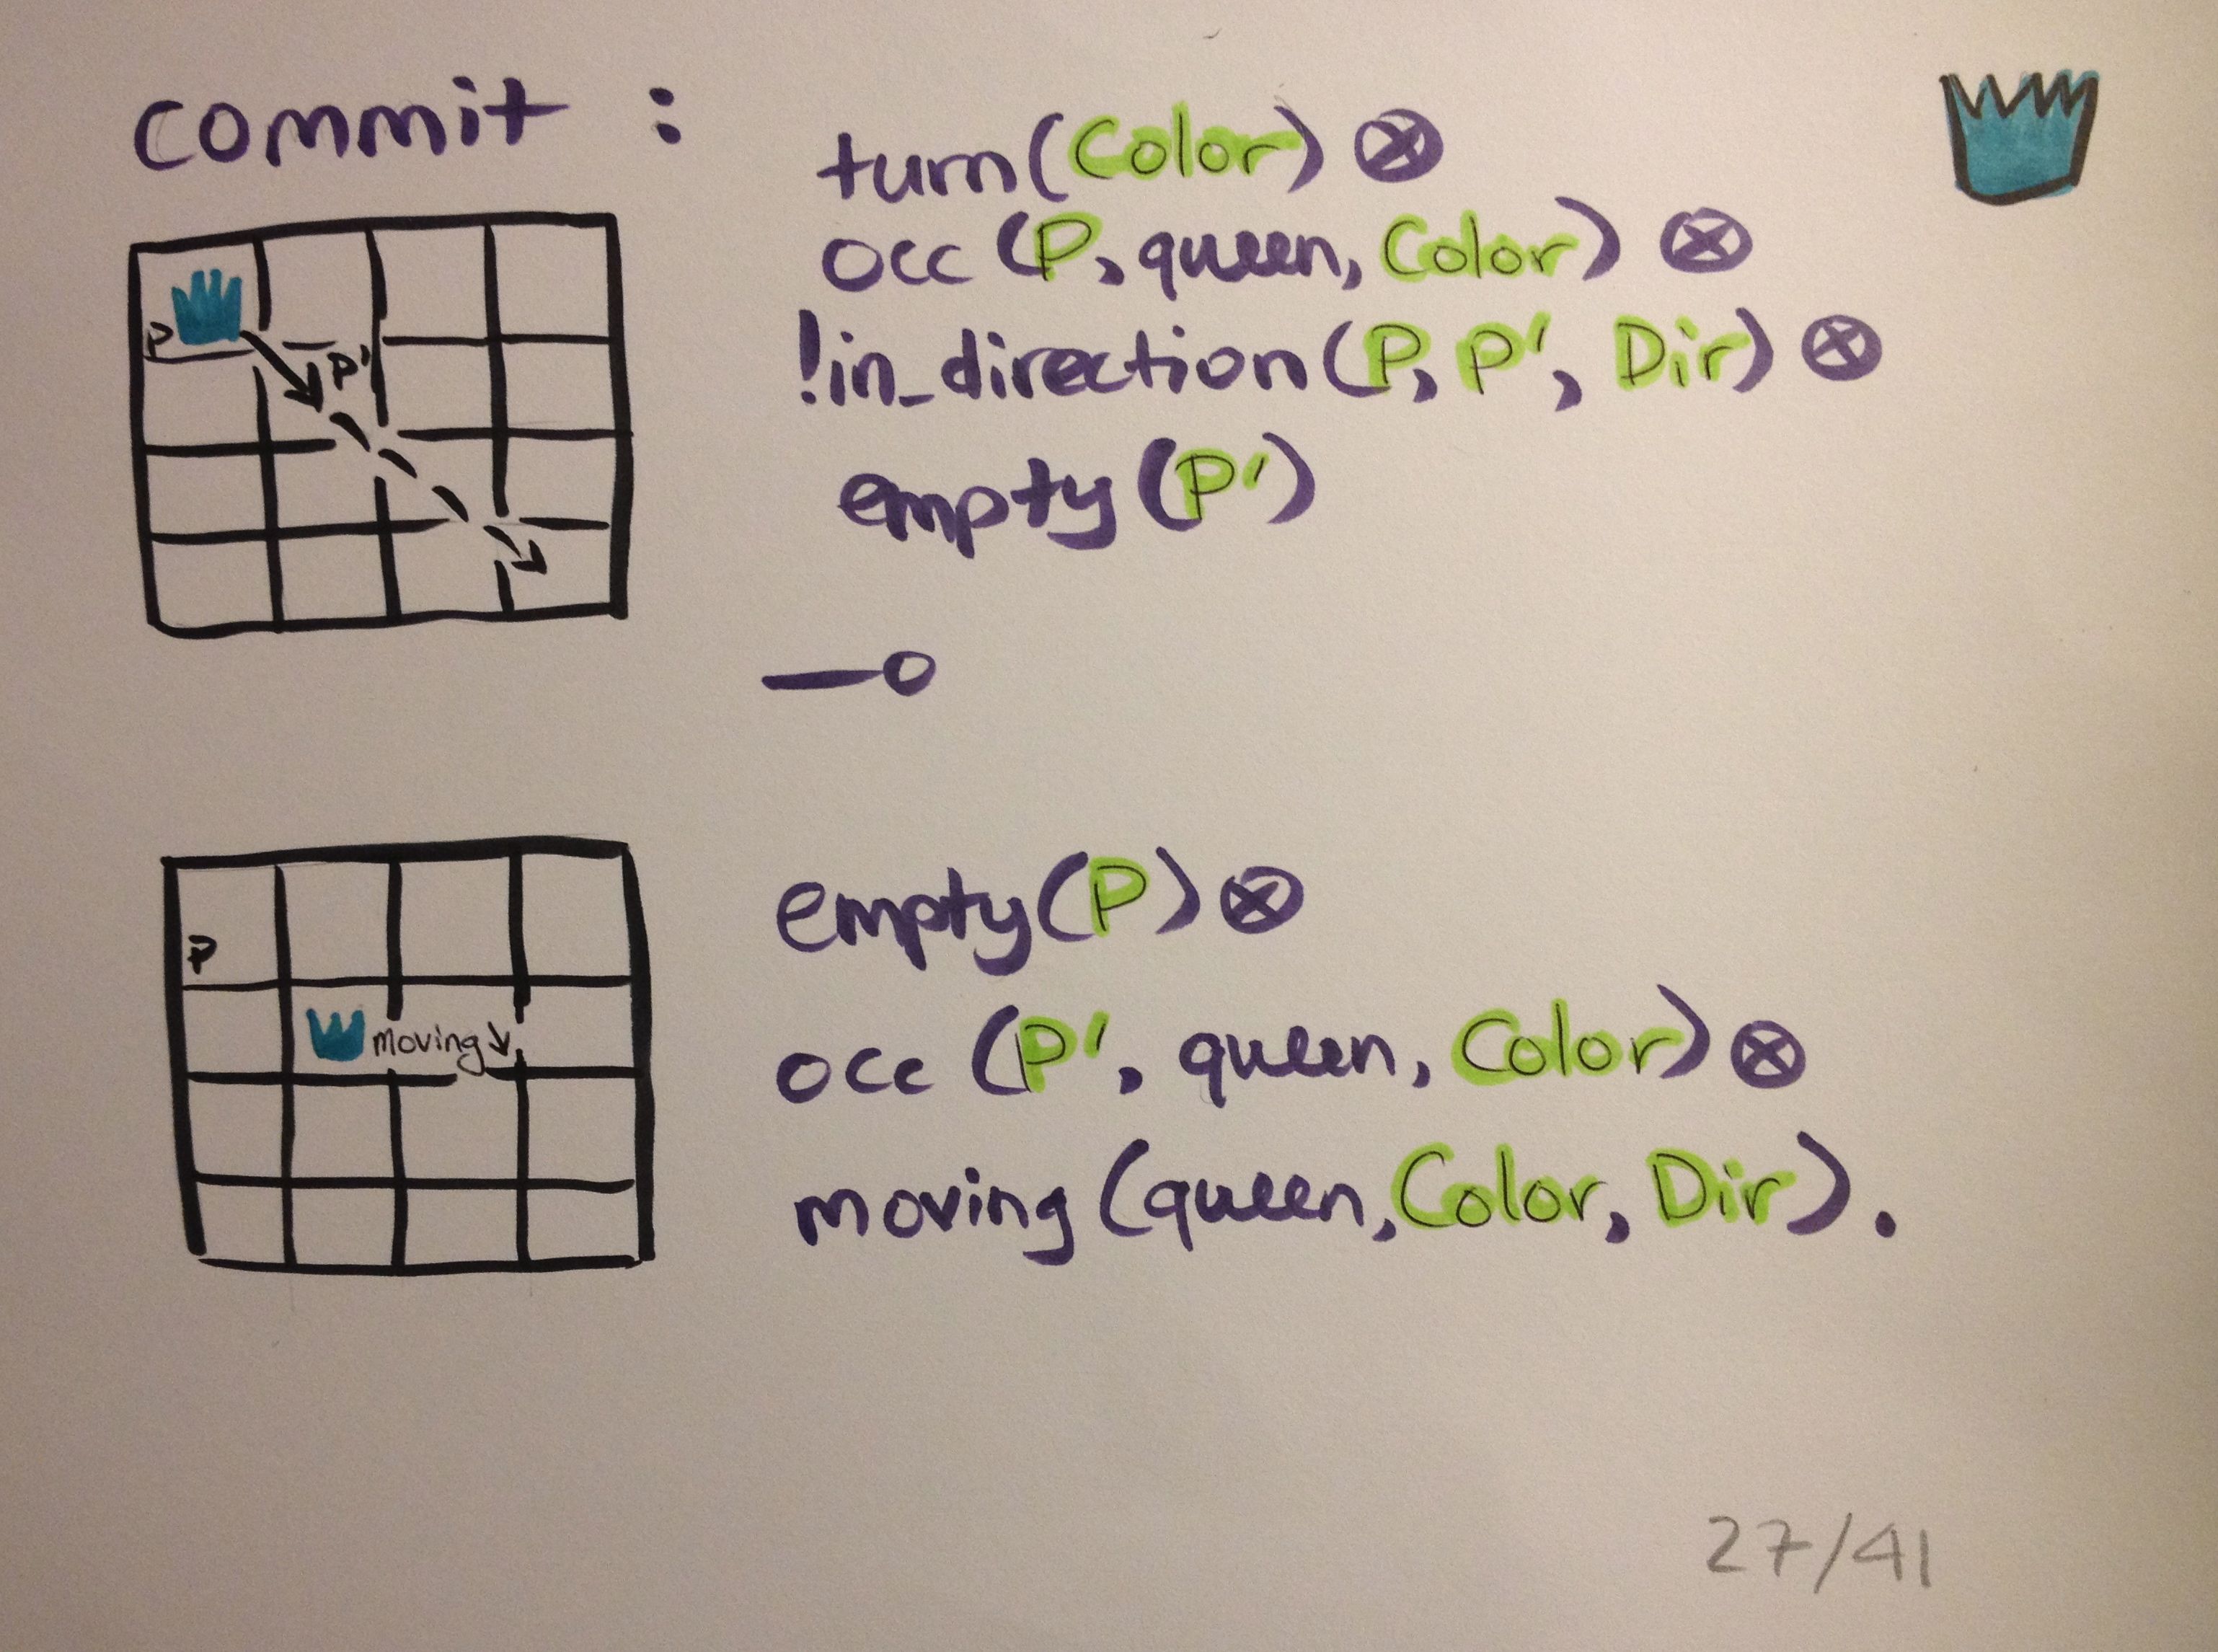 commit :
turn(Color) ⊗
occ (P, queen, Color) ⊗
!in_direction(P, P', Dir) ⊗
empty(P')
P
P'
⊸
empty(P) ⊗
occ (P', queen, Color) ⊗
moving (queen, Color, Dir).
P
moving ↘
27/41